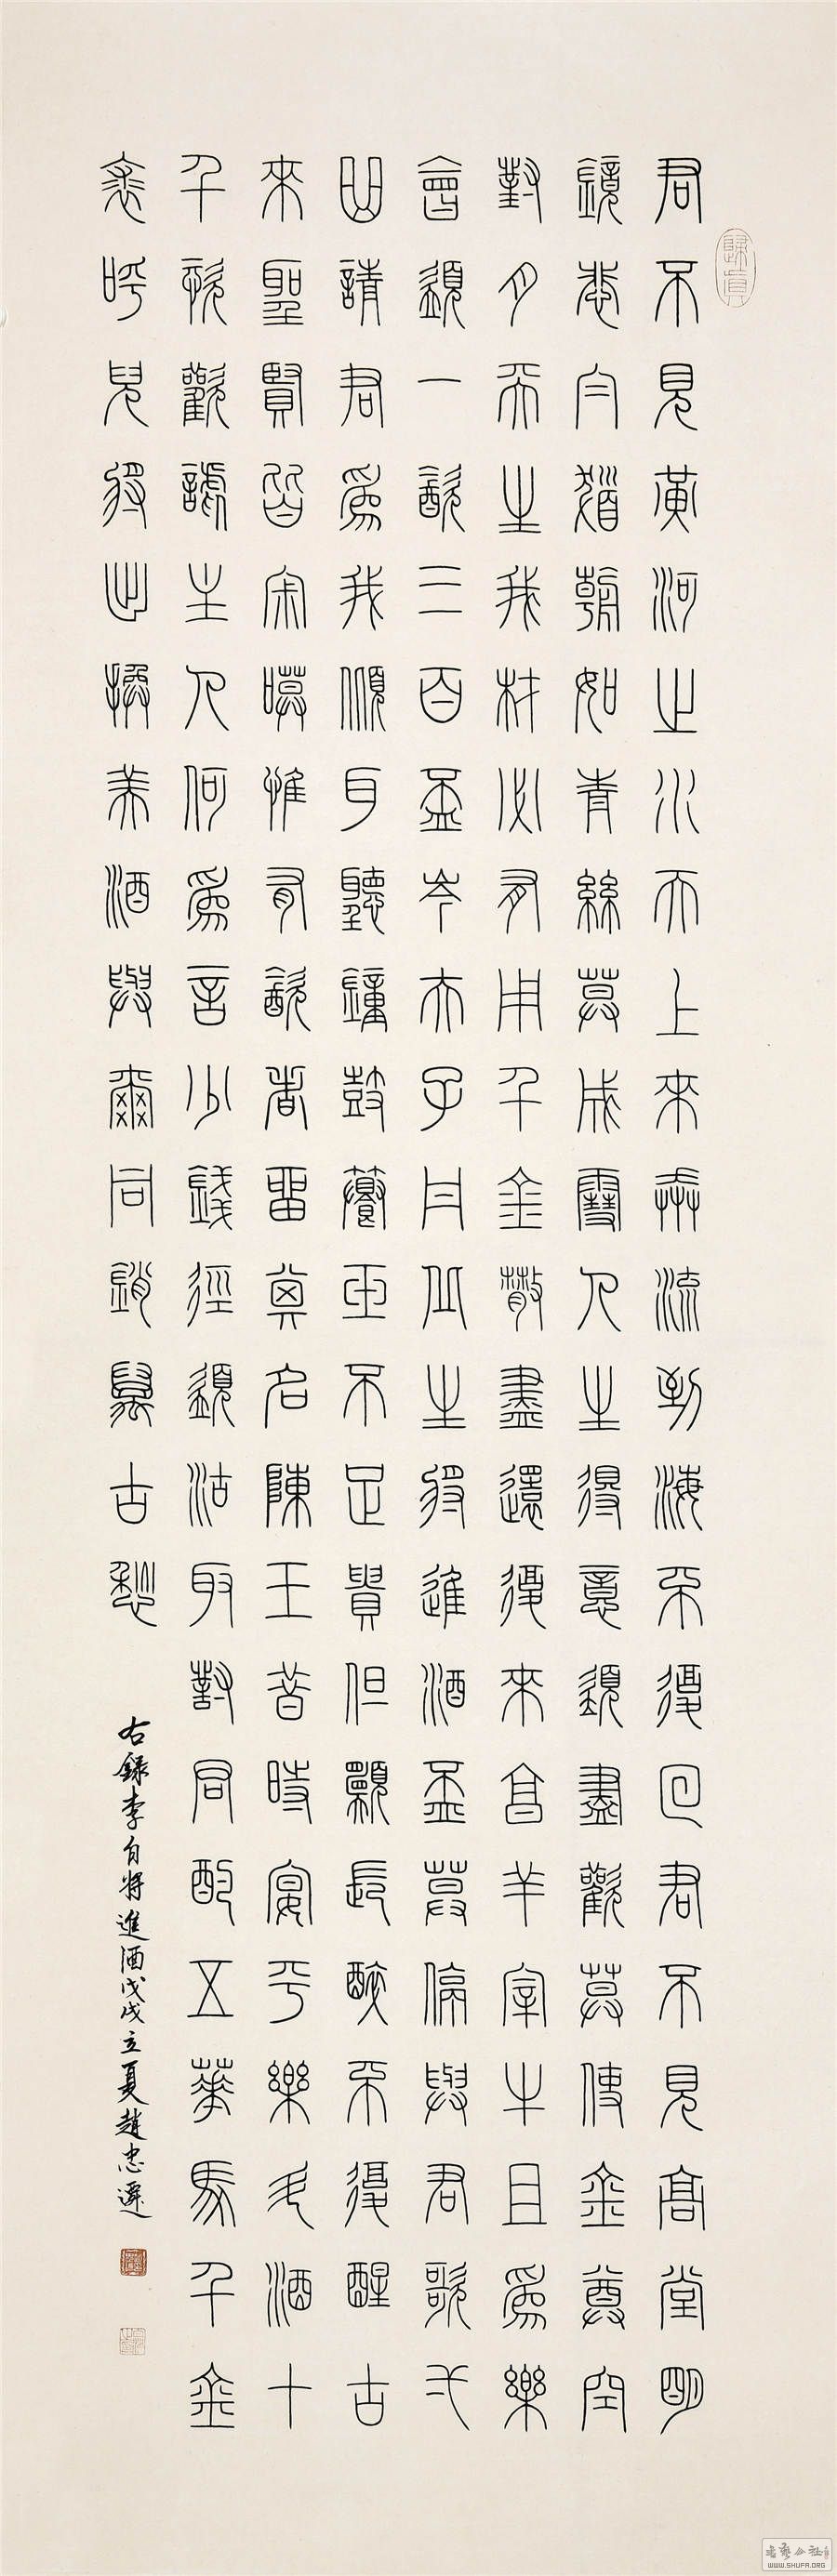 歸真
君不見黃河之水天上來奔流到海不復回君不見高堂明
鏡悲白髮朝如青絲莫成雪人生得意須盡歡莫使金尊空
對月天生我材必有用千金散盡還復來亯羊宰牛且為樂
會須一飲三百杯岑夫子丹丘生將進酒杯莫停與君歌弌
曲請君為我傾耳聽鐘鼓饌玉不足貴但願長醉不復醒古
來聖賢皆寂寞惟有飲者留其名陳王昔時宴平樂斗酒十
千恣歡謔主人何為言少錢徑須沽取對君酌五華馬千金
裘呼兒將出換美酒與爾同銷萬古愁
右錄李白將進酒戊戌立夏趙忠
书艺公社
WWW.SHUFA.ORG